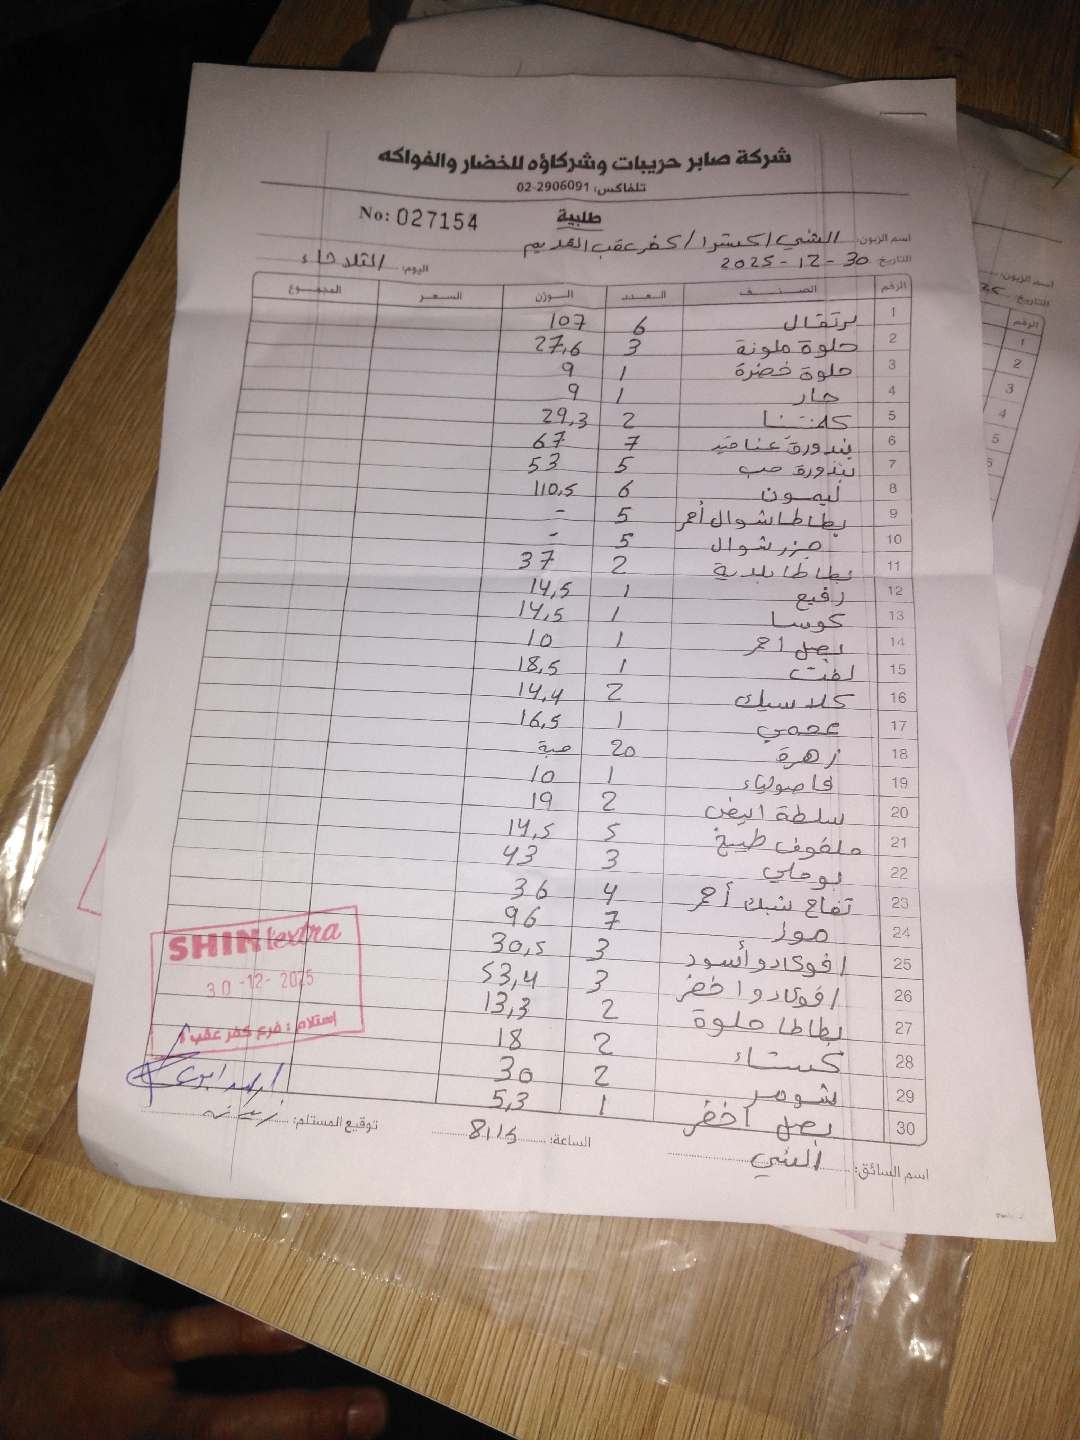 شركة صابر حريبات وشركاؤه للخضار والفواكه
تلفاكس: 02-2906091
طلبية
No: 027154
اسم الزبون: الشني اكسترا / كفر عقب القديم
التاريخ: 30-12-2025 اليوم: الثلاثاء
الرقم الصنف العدد الوزن السعر المجموع
1 برتقال 6 107
2 حلوة ملونة 3 27,6
3 حلوة خضرة 1 9
4 حار 1 9
5 كلمنتنا 2 29,3
6 بندورة عناقيد 7 67
7 بندورة حب 5 53
8 ليمون 6 110,5
9 بطاطا شوال أحمر 5 -
10 جزر شوال 5 -
11 بطاطا بلدية 2 37
12 رفيع 1 14,5
13 كوسا 1 14,5
14 بصل احمر 1 10
15 لفت 1 18,5
16 كلاسيك 2 14,4
17 عجمي 1 16,5
18 زهرة 20 حبة
19 فاصولياء 1 10
20 سلطة ابيض 2 19
21 ملفوف طبيخ 5 14,5
22 بوملي 3 43
23 تفاح شبك أحمر 4 36
24 موز 7 96
25 افوكادو أسود 3 30,5
26 افوكادو اخضر 3 53,4
27 بطاطا حلوة 2 13,3
28 كستناء 2 18
29 شومر 2 30
30 بصل أخضر 1 5,3
اسم السائق: الشني الساعة: 8:15 توقيع المستلم:
SHINI extra
30-12-2025
إستلام : فرع كفر عقب
اسم الزبون:
التاريخ:
الرقم
1
2
3
4
5
6